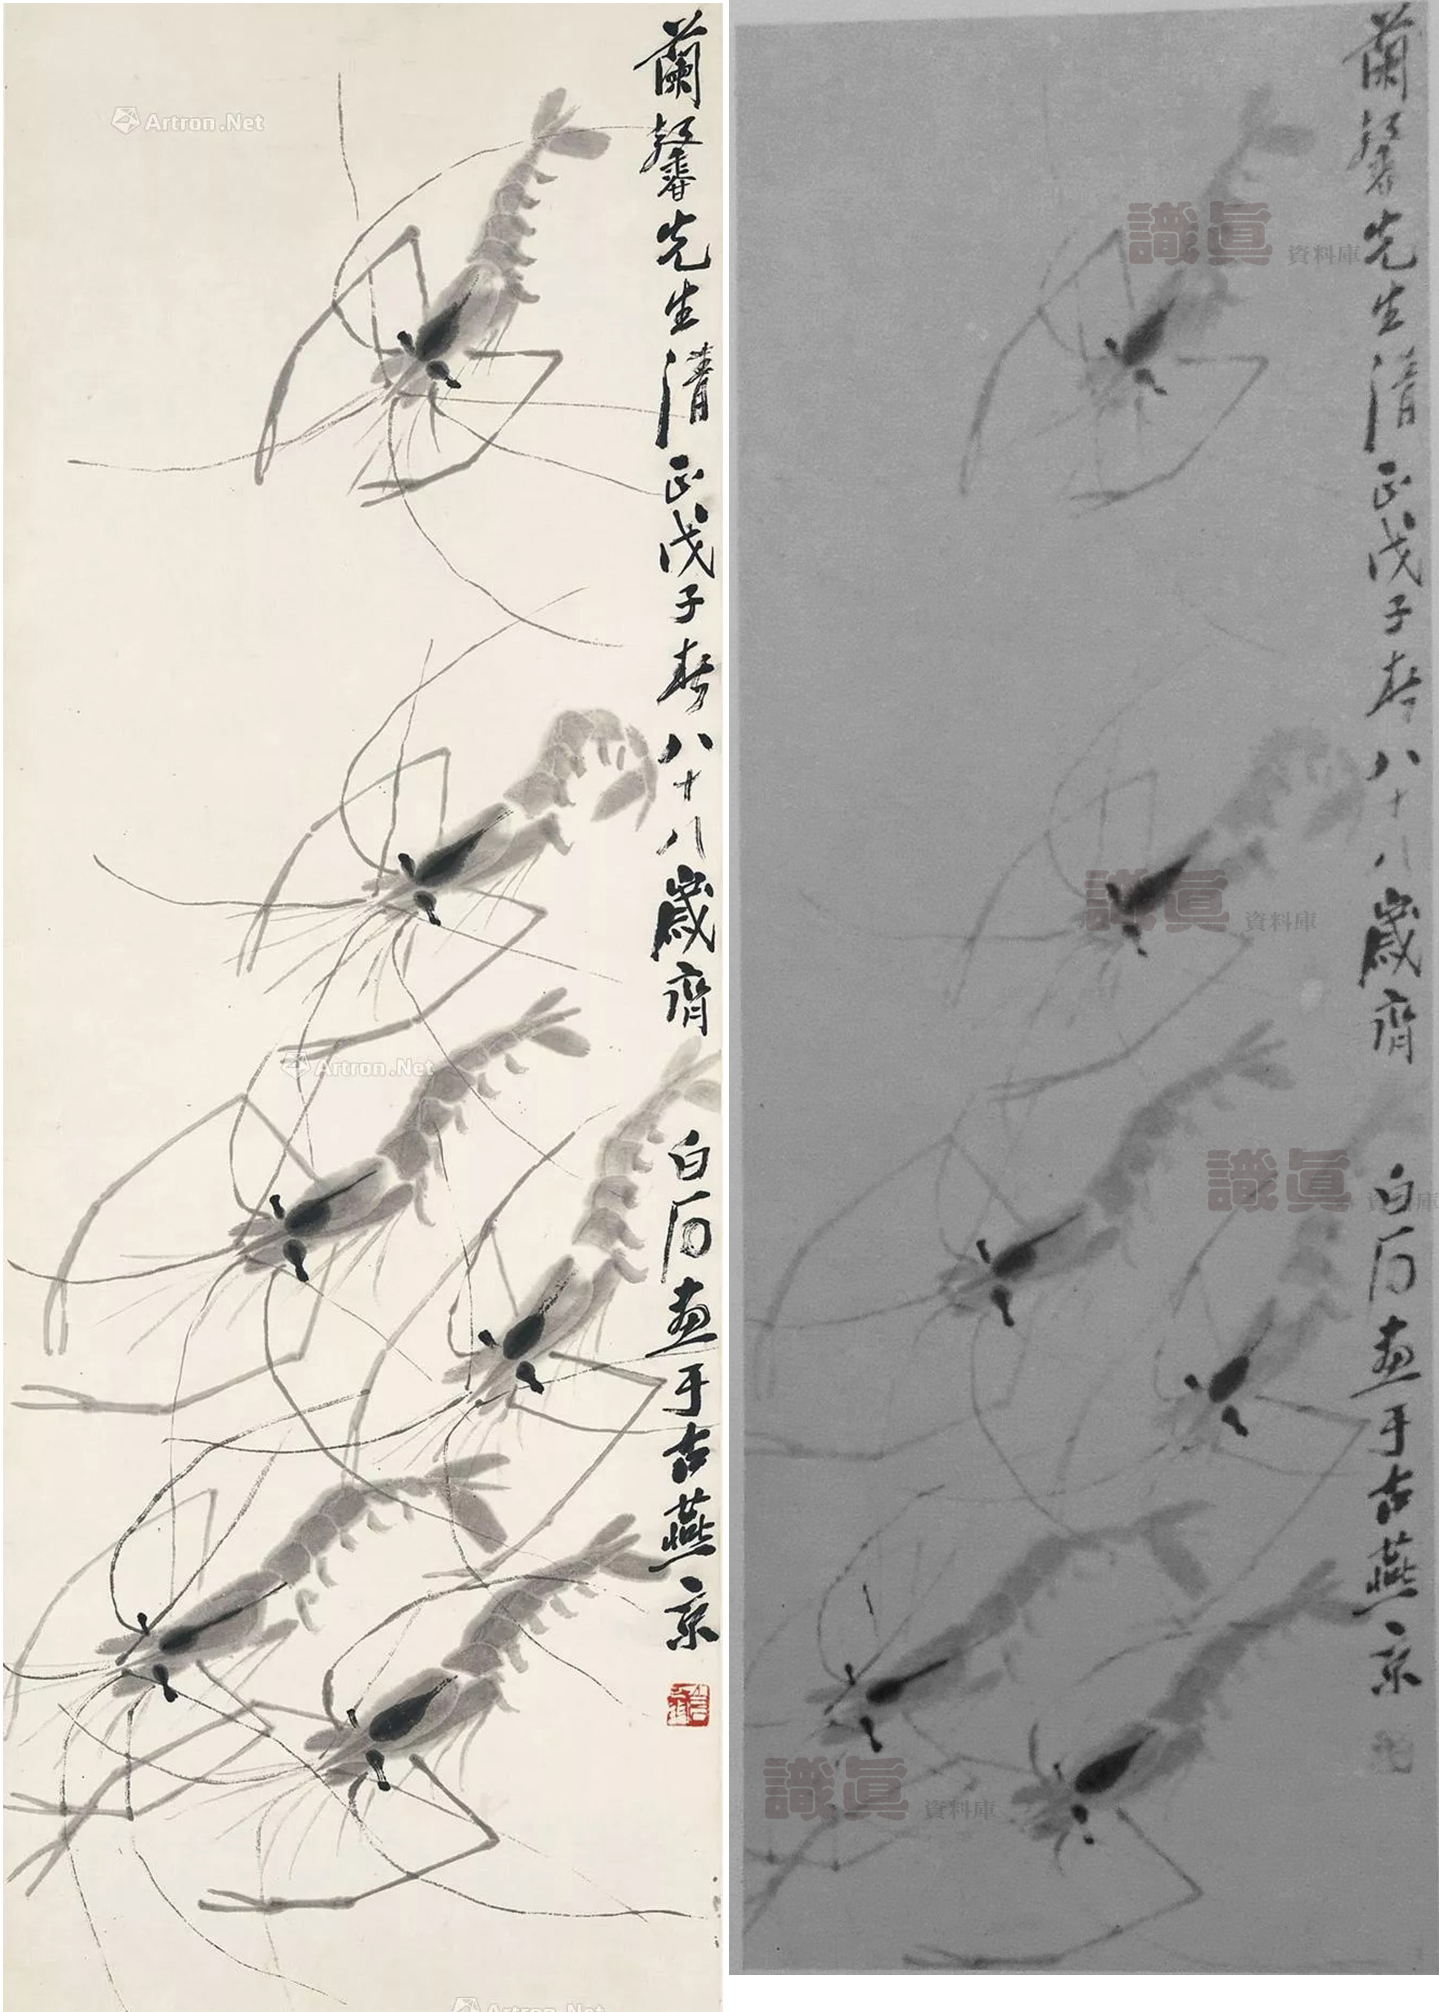 蘭馨先生清正戊子春八十八歲齊白石畫于古燕京
Artron.Net
Artron.Net
Artron.Net
蘭馨先生清正戊子春八十八歲齊白石畫于古燕京
識真 資料庫
識真 資料庫
識真 資料庫
識真 資料庫